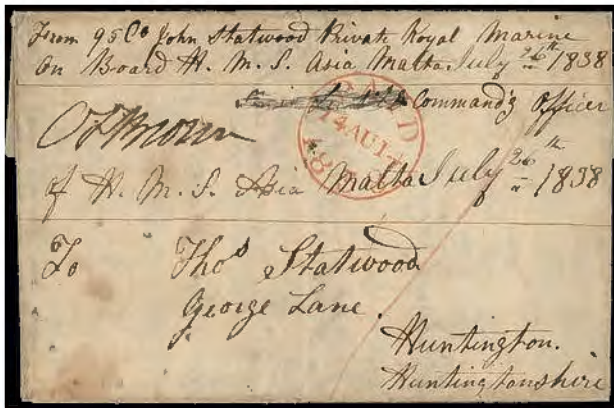 From 95 Co John Statwood Private Royal Marine
On Board H. M. S. Asia Malta July 26th 1838
Command'g Officer
PAID
14 AU 14
1838
of H. M. S. Asia Malta July 26th 1838
To Thos Statwood
George Lane.
Huntington.
Huntingtonshire